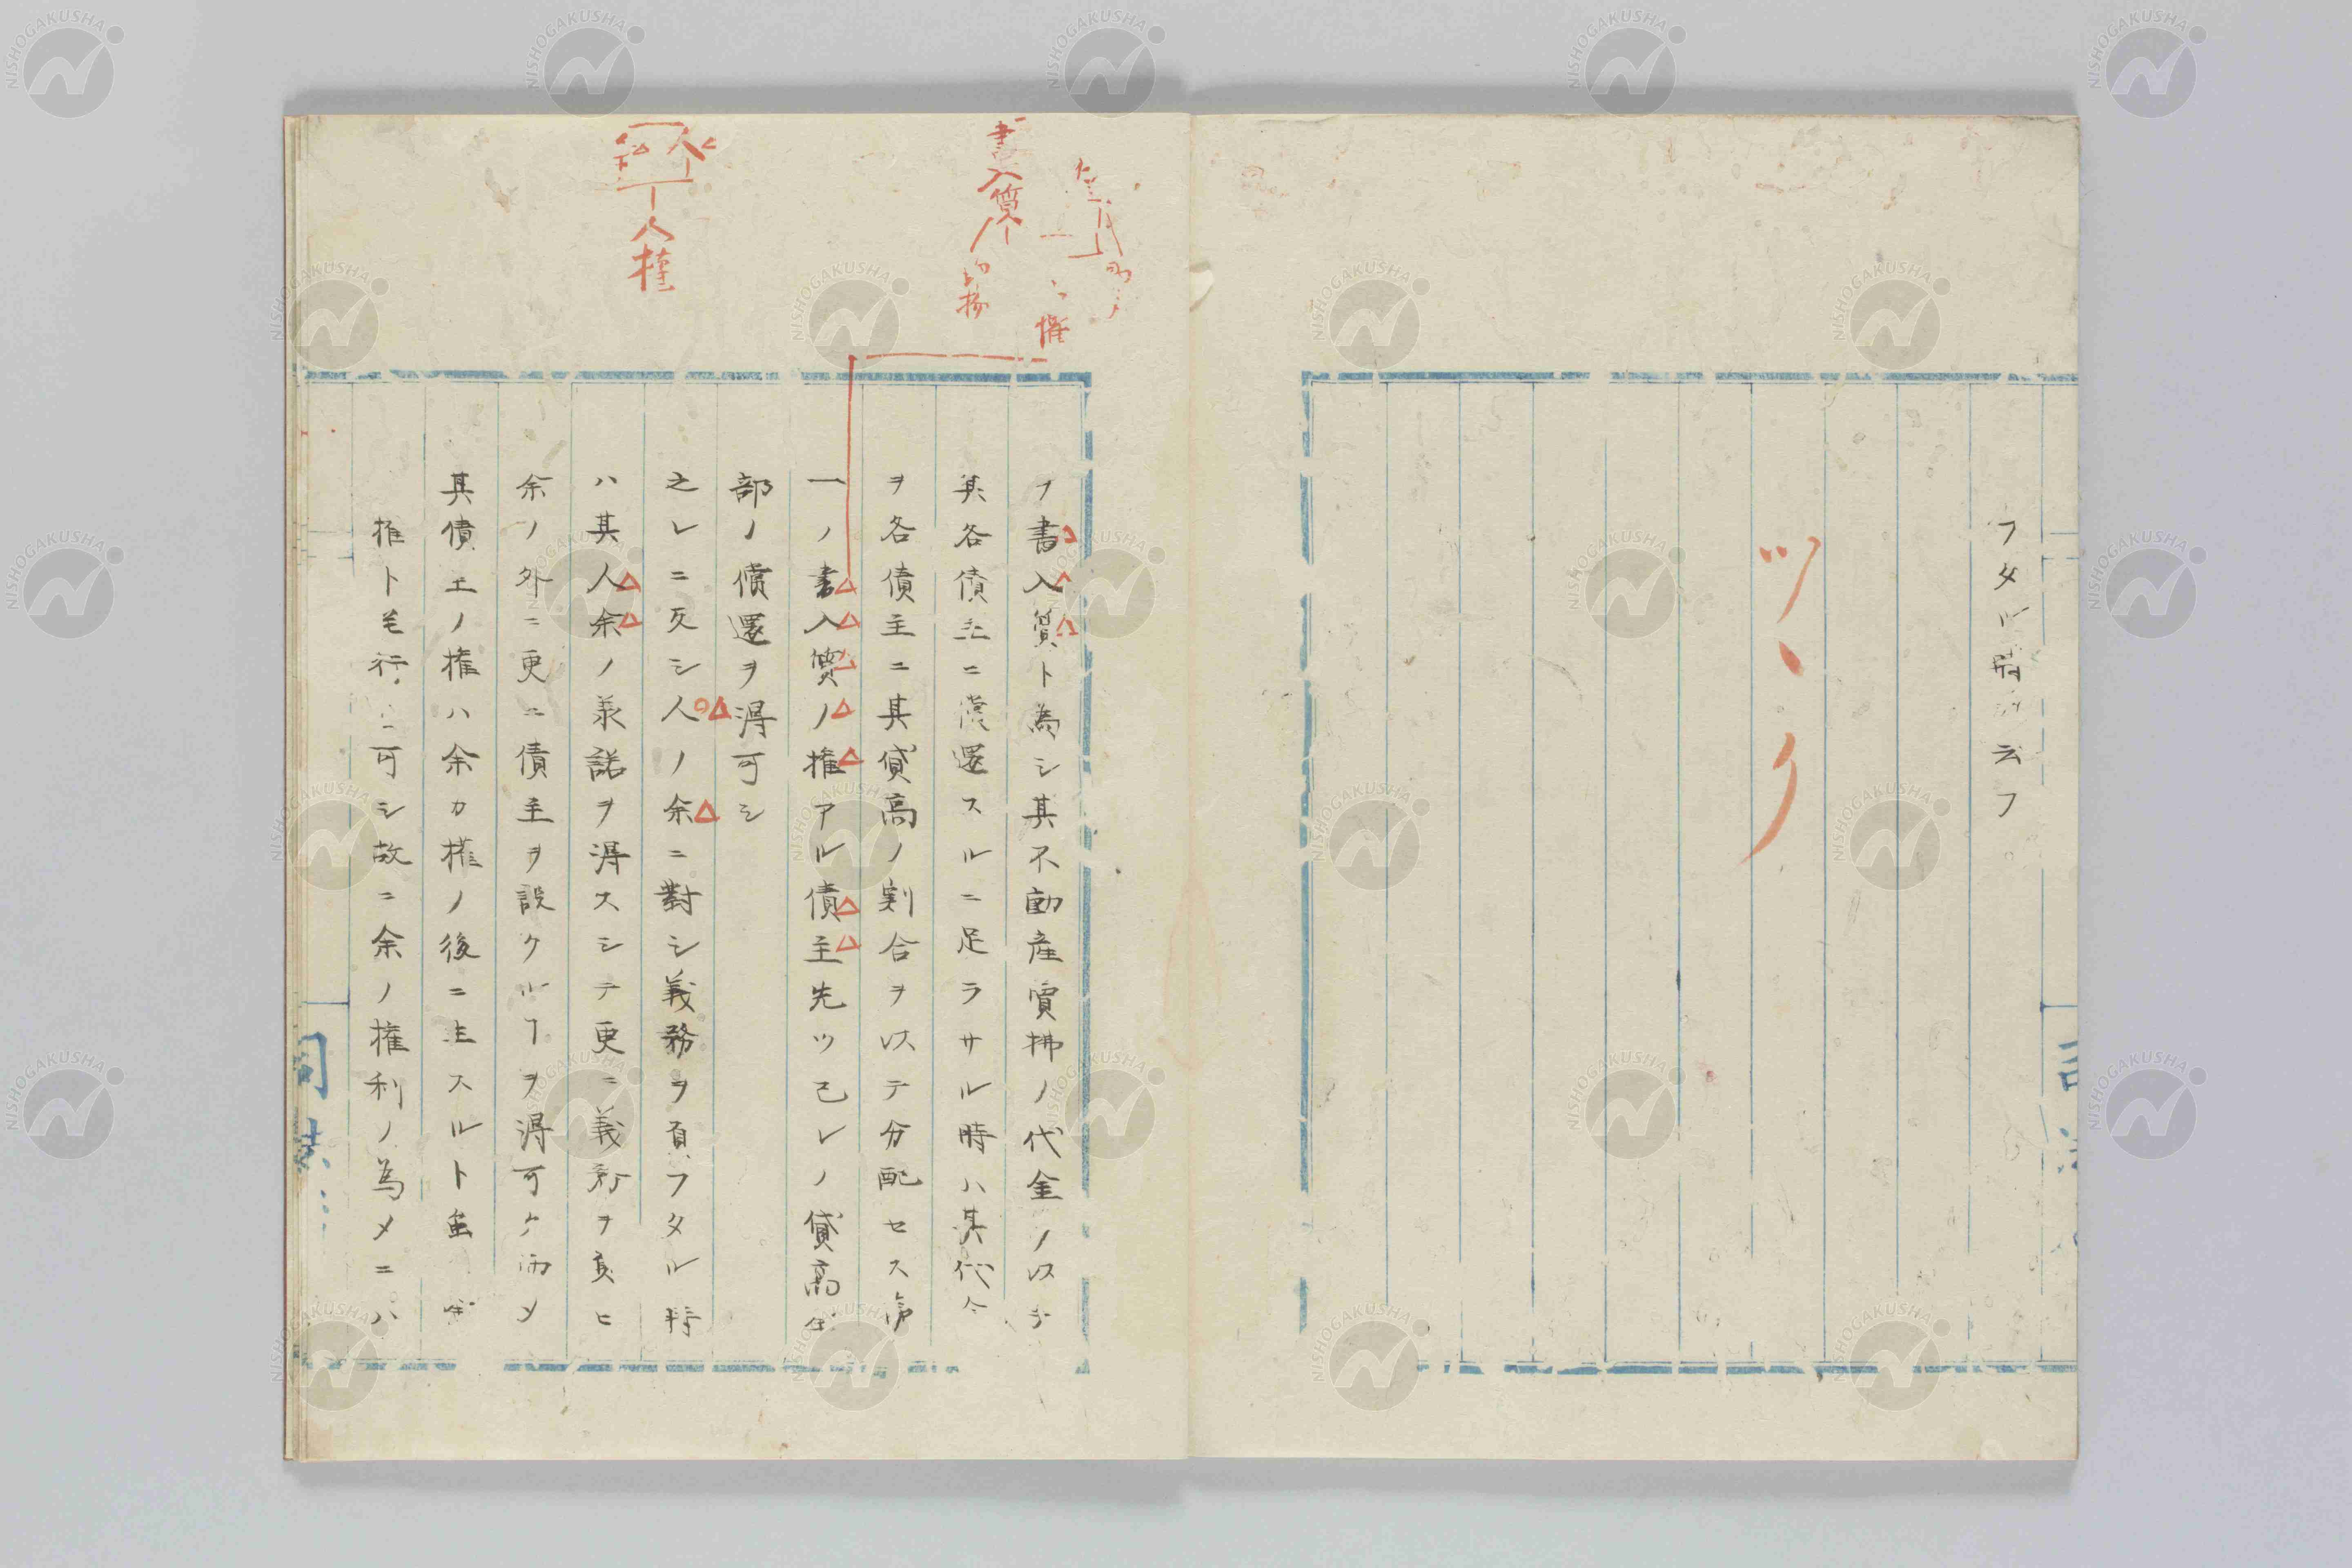 フタル
云フ
ツヽク
書入質
権
人権
ヲ書入質ト為シ其不動産質拂ノ代金ノ以テ
其各債主ニ償還スルニ足ラサル時ハ其代金
ヲ各債主ニ其貸高ノ割合ヲ以テ分配セス第
一ノ書入質ノ権アル債主先ツ己レノ貸高
部ノ償還ヲ得可シ
之レニ反シ人ノ余ニ對シ義務ヲ負フタル時
ハ其人余ノ承諾ヲ得スシテ更ニ義務ヲ負ヒ
余ノ外ニ更ニ債主ヲ設クルヿヲ得可ク而メ
其債主ノ権ハ余カ権ノ後ニ生スルト雖
権ト
行
可シ故ニ余ノ権利ノ為メニハ
司
NISHOGAKUSHA